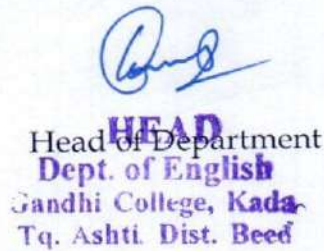 HEAD
Head of Department
Dept. of English
Gandhi College, Kada
Tq. Ashti Dist. Beed